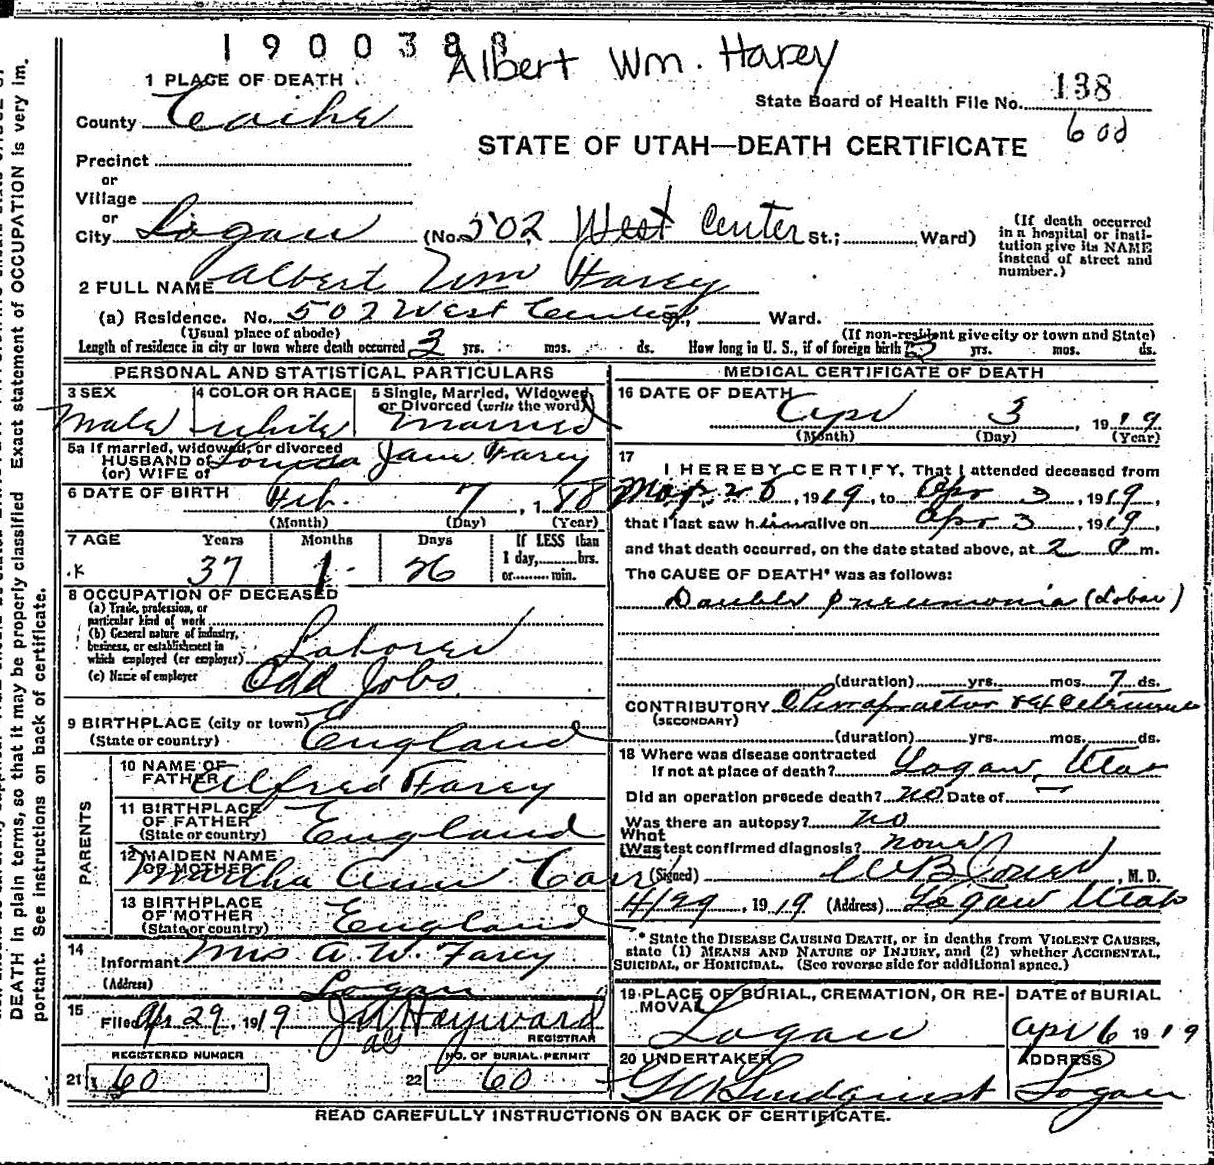 1900388
Albert Wm. Harey
1 PLACE OF DEATH
State Board of Health File No. 138
County Cache
60d
STATE OF UTAH—DEATH CERTIFICATE
Precinct
or
Village
or
City Logan (No. 502 West Center St.; Ward)
(If death occurred in a hospital or institution give its NAME instead of street and number.)
2 FULL NAME Albert Wm Farey
(a) Residence. No. 502 West Center St., Ward.
(Usual place of abode) (If non-resident give city or town and State)
Length of residence in city or town where death occurred 3 yrs. mos. ds. How long in U. S., if of foreign birth? yrs. mos. ds.
PERSONAL AND STATISTICAL PARTICULARS
3 SEX 4 COLOR OR RACE 5 Single, Married, Widowed or Divorced (write the word)
Male white Married
5a If married, widowed, or divorced
HUSBAND of
(or) WIFE of Jane Farey
6 DATE OF BIRTH Feb. 7, 1
(Month) (Day) (Year)
7 AGE Years Months Days If LESS than
37 1 26 1 day, hrs.
or min.
8 OCCUPATION OF DECEASED
(a) Trade, profession, or particular kind of work
(b) General nature of industry, business, or establishment in which employed (or employer) Laborer
(c) Name of employer Odd Jobs
9 BIRTHPLACE (city or town)
(State or country) England
PARENTS
10 NAME OF FATHER Alfred Farey
11 BIRTHPLACE OF FATHER
(State or country) England
12 MAIDEN NAME OF MOTHER Martha Ann
13 BIRTHPLACE OF MOTHER
(State or country) England
14 Informant Mrs A. W. Farey
(Address) Logan
15 Filed Apr 29, 1919 Hayward
REGISTRAR
REGISTERED NUMBER NO. OF BURIAL PERMIT
21 60 22 60
MEDICAL CERTIFICATE OF DEATH
16 DATE OF DEATH Apr 3, 1919
(Month) (Day) (Year)
17 I HEREBY CERTIFY, That I attended deceased from
Mar. 26, 1919, to Apr 3, 1919,
that I last saw him alive on Apr 3, 1919,
and that death occurred, on the date stated above, at 2 m.
The CAUSE OF DEATH* was as follows:
Double pneumonia (Lobar)
(duration) yrs. mos. 7 ds.
CONTRIBUTORY Chiropractor
(SECONDARY)
(duration) yrs. mos. ds.
18 Where was disease contracted
If not at place of death? Logan, Utah
Did an operation precede death? no Date of —
Was there an autopsy? no
What
(Was test confirmed diagnosis? none
(Signed) M. D.
4/29, 1919 (Address) Logan Utah
* State the DISEASE CAUSING DEATH, or in deaths from VIOLENT CAUSES, state (1) MEANS AND NATURE OF INJURY, and (2) whether ACCIDENTAL, SUICIDAL, or HOMICIDAL. (See reverse side for additional space.)
19 PLACE OF BURIAL, CREMATION, OR REMOVAL Logan
DATE of BURIAL Apr 6 1919
20 UNDERTAKER Lindquist
ADDRESS Logan
READ CAREFULLY INSTRUCTIONS ON BACK OF CERTIFICATE.
Exact statement of OCCUPATION is very im.
DEATH in plain terms, so that it may be properly classified
portant. See instructions on back of certificate.